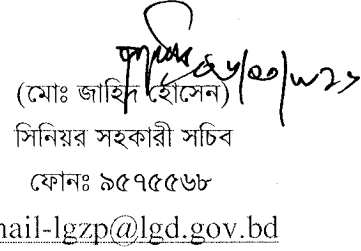 (মোঃ জাহিদ হোসেন)
সিনিয়র সহকারী সচিব
ফোনঃ ৯৫৭৫৫৬৮
mail-lgzp@lgd.gov.bd